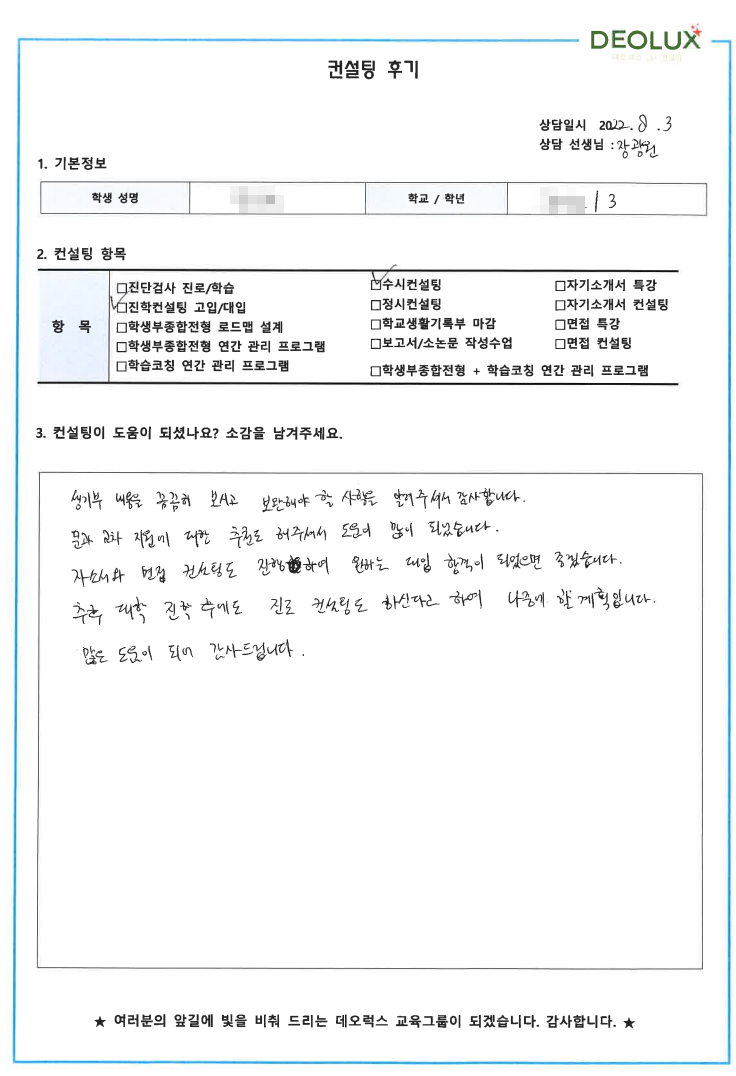 DEOLUX
컨설팅 후기
상담일시 2022. 8 . 3
상담 선생님 : 장광원
1. 기본정보
학생 성명 학교 / 학년 / 3
2. 컨설팅 항목
항 목
□진단검사 진로/학습 □수시컨설팅 □자기소개서 특강
□진학컨설팅 고입/대입 □정시컨설팅 □자기소개서 컨설팅
□학생부종합전형 로드맵 설계 □학교생활기록부 마감 □면접 특강
□학생부종합전형 연간 관리 프로그램 □보고서/소논문 작성수업 □면접 컨설팅
□학습코칭 연간 관리 프로그램 □학생부종합전형 + 학습코칭 연간 관리 프로그램
3. 컨설팅이 도움이 되셨나요? 소감을 남겨주세요.
생기부 내용을 꼼꼼히 보시고 보완해야 할 사항을 알려주셔서 감사합니다.
문과 교차 지원에 대한 추천도 해주셔서 도움이 많이 되었습니다.
자소서와 면접 컨설팅도 진행하여 원하는 대입 합격이 되었으면 좋겠습니다.
추후 대학 진학 후에도 진로 컨설팅도 하신다고 하여 나중에 할 계획입니다.
많은 도움이 되어 감사드립니다.
★ 여러분의 앞길에 빛을 비춰 드리는 데오럭스 교육그룹이 되겠습니다. 감사합니다. ★